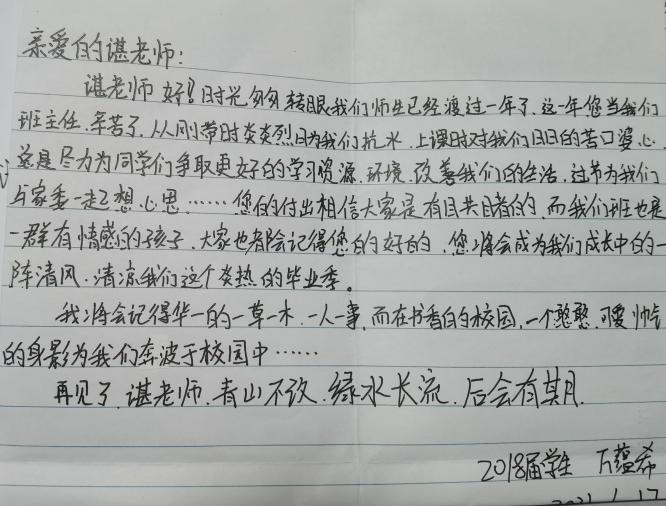 亲爱的谌老师：
谌老师好！时光匆匆转眼我们师生已经渡过一年了，这一年您当我们
班主任，辛苦了，从刚带时炎炎烈日为我们扛水，上课时对我们日日的苦口婆心，
总是尽力为同学们争取更好的学习资源、环境、改善我们的生活，过节为我们
与家委一起想心思……您的付出相信大家是有目共睹的，而我们班也是
一群有情感的孩子，大家也都会记得您的好的，您将会成为我们成长中的一
阵清风，清凉我们这个炎热的毕业季。
我将会记得华一的一草一木，一人一事，而在书香的校园，一个憨憨，可爱帅气
的身影为我们奔波于校园中……
再见了，谌老师，青山不改，绿水长流，后会有期，
2018届学生 万蕴希
2021.1.17